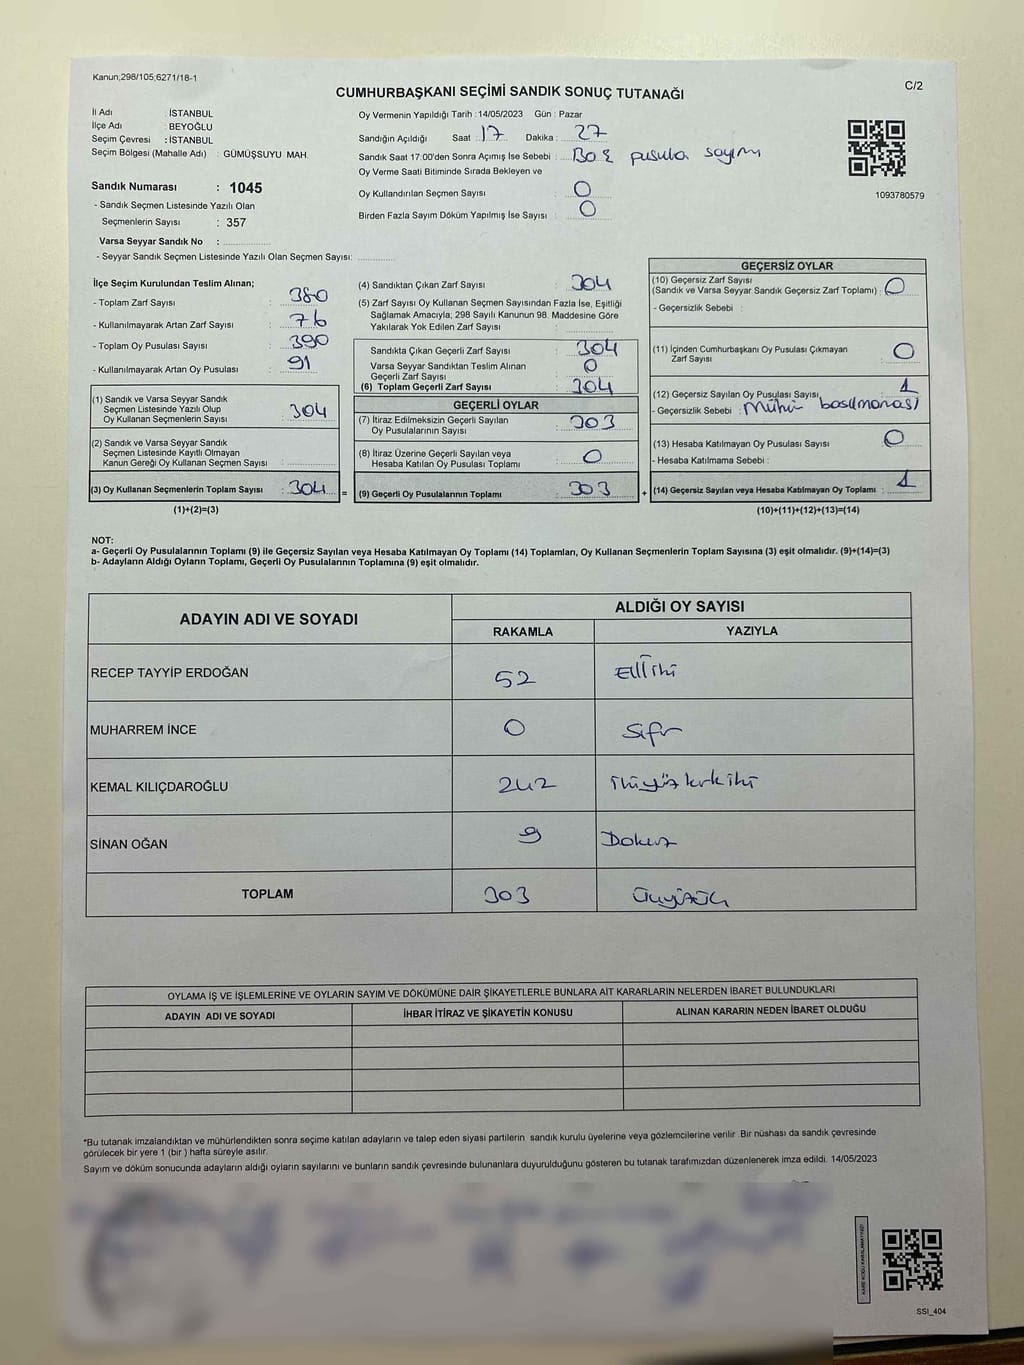 Kanun;298/105;6271/18-1
C/2
CUMHURBAŞKANI SEÇİMİ SANDIK SONUÇ TUTANAĞI
İl Adı : İSTANBUL
İlçe Adı : BEYOĞLU
Seçim Çevresi : İSTANBUL
Seçim Bölgesi (Mahalle Adı) : GÜMÜŞSUYU MAH.
Sandık Numarası : 1045
- Sandık Seçmen Listesinde Yazılı Olan
Seçmenlerin Sayısı : 357
Varsa Seyyar Sandık No :
- Seyyar Sandık Seçmen Listesinde Yazılı Olan Seçmen Sayısı:
Oy Vermenin Yapıldığı Tarih : 14/05/2023 Gün : Pazar
Sandığın Açıldığı Saat : 17 Dakika : 27
Sandık Saat 17:00'den Sonra Açımış İse Sebebi : Boş pusula sayımı
Oy Verme Saati Bitiminde Sırada Bekleyen ve
Oy Kullandırılan Seçmen Sayısı : 0
Birden Fazla Sayım Döküm Yapılmış İse Sayısı : 0
1093780579
İlçe Seçim Kurulundan Teslim Alınan;
- Toplam Zarf Sayısı : 380
- Kullanılmayarak Artan Zarf Sayısı : 76
- Toplam Oy Pusulası Sayısı : 390
- Kullanılmayarak Artan Oy Pusulası : 91
(1) Sandık ve Varsa Seyyar Sandık
Seçmen Listesinde Yazılı Olup
Oy Kullanan Seçmenlerin Sayısı : 304
(2) Sandık ve Varsa Seyyar Sandık
Seçmen Listesinde Kayıtlı Olmayan
Kanun Gereği Oy Kullanan Seçmen Sayısı :
(3) Oy Kullanan Seçmenlerin Toplam Sayısı : 304 =
(1)+(2)=(3)
(4) Sandıktan Çıkan Zarf Sayısı : 304
(5) Zarf Sayısı Oy Kullanan Seçmen Sayısından Fazla İse, Eşitliği
Sağlamak Amacıyla; 298 Sayılı Kanunun 98. Maddesine Göre
Yakılarak Yok Edilen Zarf Sayısı :
Sandıkta Çıkan Geçerli Zarf Sayısı : 304
Varsa Seyyar Sandıktan Teslim Alınan
Geçerli Zarf Sayısı : 0
(6) Toplam Geçerli Zarf Sayısı : 304
GEÇERLİ OYLAR
(7) İtiraz Edilmeksizin Geçerli Sayılan
Oy Pusulalarının Sayısı : 303
(8) İtiraz Üzerine Geçerli Sayılan veya
Hesaba Katılan Oy Pusulası Toplamı : 0
(9) Geçerli Oy Pusulalarının Toplamı : 303 +
GEÇERSİZ OYLAR
(10) Geçersiz Zarf Sayısı
(Sandık ve Varsa Seyyar Sandık Geçersiz Zarf Toplamı) : 0
- Geçersizlik Sebebi :
(11) İçinden Cumhurbaşkanı Oy Pusulası Çıkmayan
Zarf Sayısı : 0
(12) Geçersiz Sayılan Oy Pusulası Sayısı : 1
- Geçersizlik Sebebi : Mühür basılmaması
(13) Hesaba Katılmayan Oy Pusulası Sayısı : 0
- Hesaba Katılmama Sebebi :
(14) Geçersiz Sayılan veya Hesaba Katılmayan Oy Toplamı : 1
(10)+(11)+(12)+(13)=(14)
NOT:
a- Geçerli Oy Pusulalarının Toplamı (9) ile Geçersiz Sayılan veya Hesaba Katılmayan Oy Toplamı (14) Toplamları, Oy Kullanan Seçmenlerin Toplam Sayısına (3) eşit olmalıdır. (9)+(14)=(3)
b- Adayların Aldığı Oyların Toplamı, Geçerli Oy Pusulalarının Toplamına (9) eşit olmalıdır.
ADAYIN ADI VE SOYADI
ALDIĞI OY SAYISI
RAKAMLA YAZIYLA
RECEP TAYYİP ERDOĞAN 52 Elliiki
MUHARREM İNCE 0 Sıfır
KEMAL KILIÇDAROĞLU 242 ikiyüzkırkiki
SİNAN OĞAN 9 Dokuz
TOPLAM 303 Üçyüzüç
OYLAMA İŞ VE İŞLEMLERİNE VE OYLARIN SAYIM VE DÖKÜMÜNE DAİR ŞİKAYETLERLE BUNLARA AİT KARARLARIN NELERDEN İBARET BULUNDUKLARI
ADAYIN ADI VE SOYADI İHBAR İTİRAZ VE ŞİKAYETİN KONUSU ALINAN KARARIN NEDEN İBARET OLDUĞU
*Bu tutanak imzalandıktan ve mühürlendikten sonra seçime katılan adayların ve talep eden siyasi partilerin sandık kurulu üyelerine veya gözlemcilerine verilir. Bir nüshası da sandık çevresinde
görülecek bir yere 1 (bir ) hafta süreyle asılır.
Sayım ve döküm sonucunda adayların aldığı oyların sayılarını ve bunların sandık çevresinde bulunanlara duyurulduğunu gösteren bu tutanak tarafımızdan düzenlenerek imza edildi. 14/05/2023
KARE KODU KARALAMAYINIZ!
SSI_404